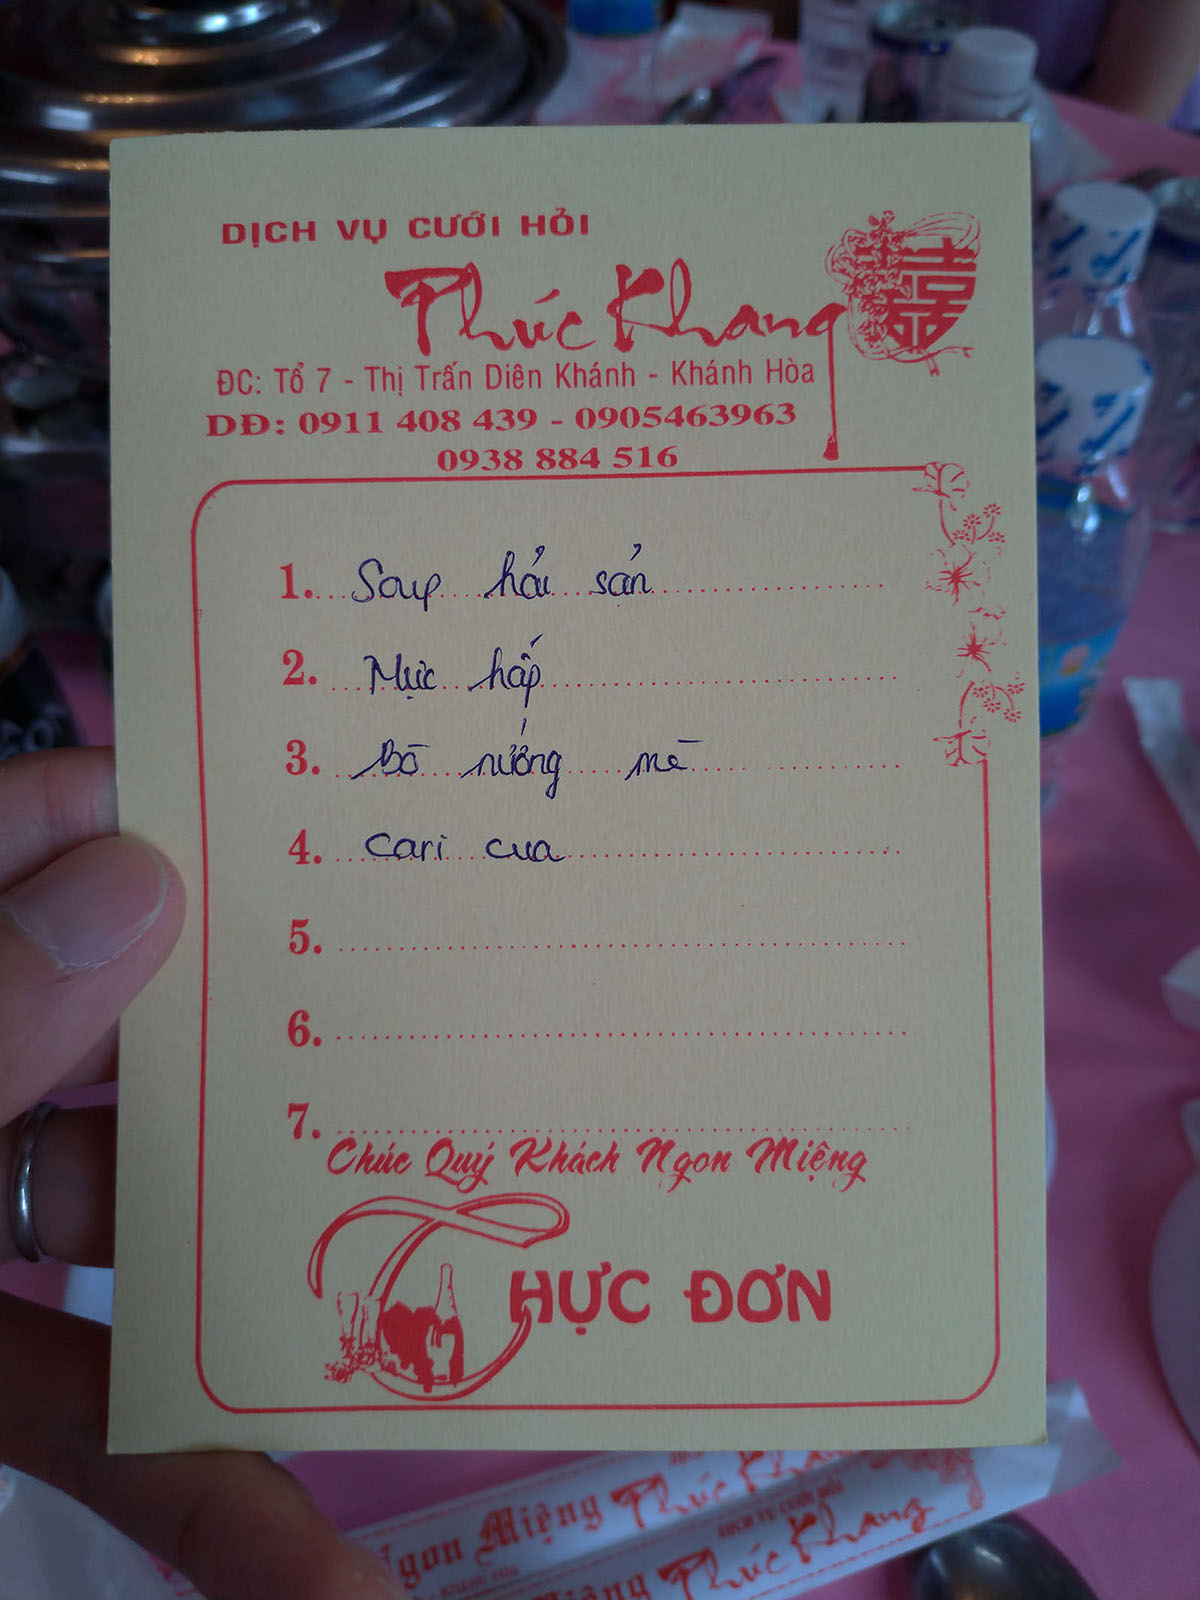 DỊCH VỤ CƯỚI HỎI
Phúc Khang
囍
ĐC: Tổ 7 - Thị Trấn Diên Khánh - Khánh Hòa
DĐ: 0911 408 439 - 0905463963
0938 884 516
1. Soup hải sản
2. Mực hấp
3. Bò nướng mè
4. Cari cua
5.
6.
7.
Chúc Quý Khách Ngon Miệng
THỰC ĐƠN
Ngon Miệng Phúc Khang
Khánh Hòa
DỊCH VỤ CƯỚI HỎI
Miệng Phúc Khang